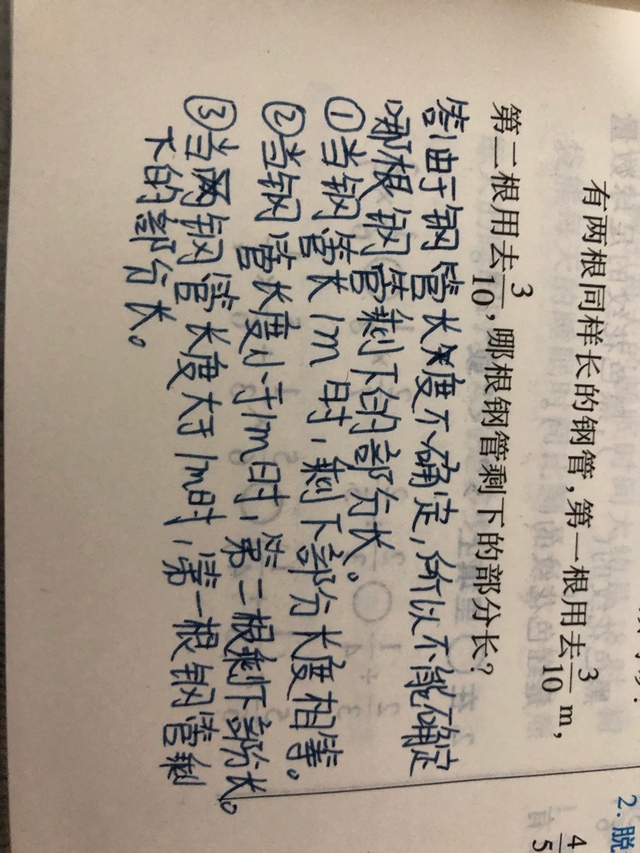 有两根同样长的钢管,第一根用去3/10 m,
第二根用去3/10,哪根钢管剩下的部分长?
答:由于钢管长度不确定,所以不能确定
哪根钢管剩下的部分长。
①当钢管长1m时,剩下部分长度相等。
②当钢管长度小于1m时,第二根剩下部分长。
③当两钢管长度大于1m时,第一根钢管剩
下的部分长。
2. 脱
4/5